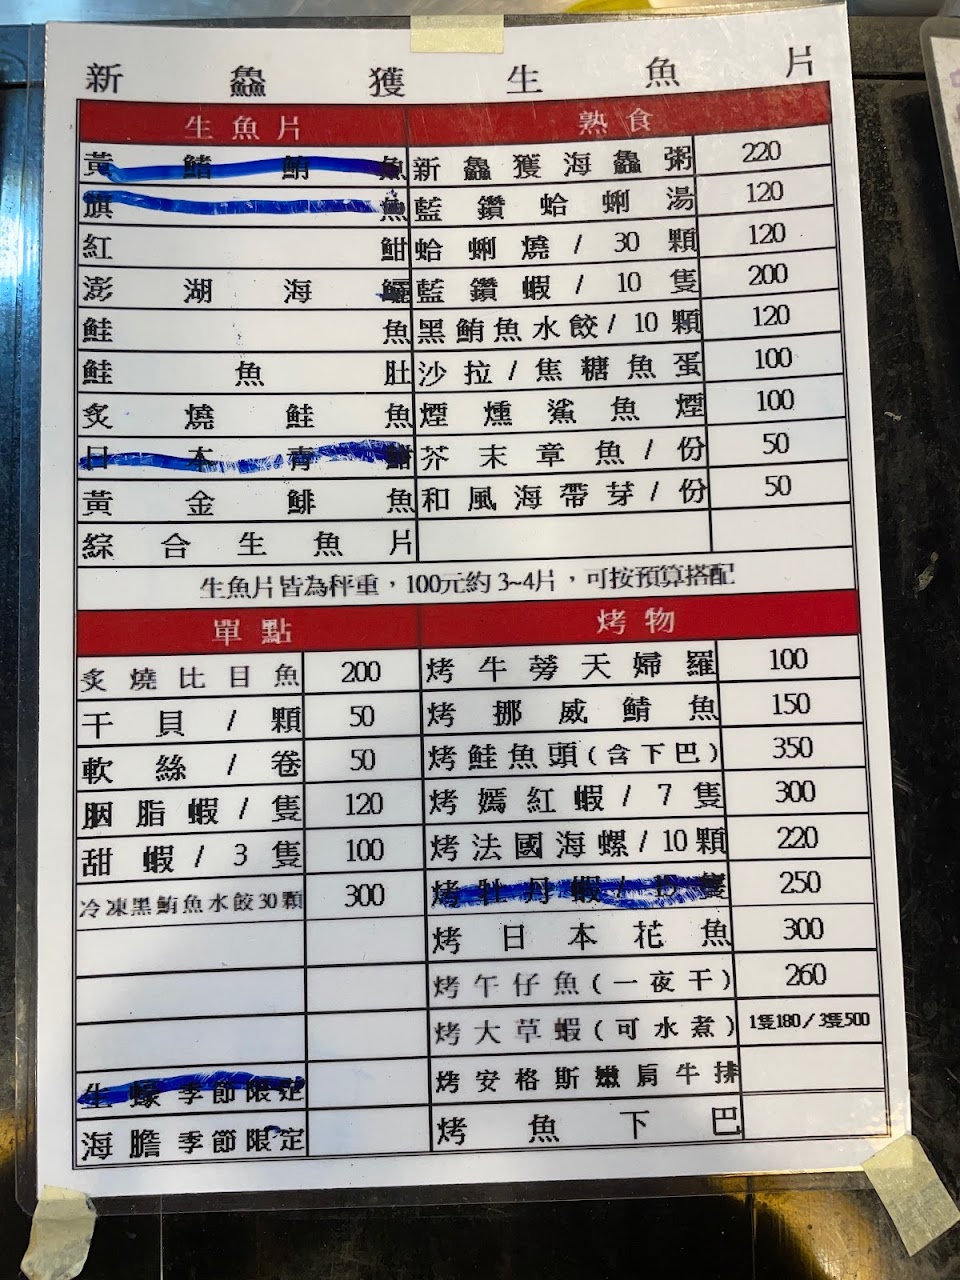 新鱻獲生魚片
生魚片 熟食
黃鰭鮪魚 新鱻獲海鱻粥 220
旗魚 藍鑽蛤蜊湯 120
紅魽 蛤蜊燒/30顆 120
澎湖海鱺 藍鑽蝦/10隻 200
鮭魚 黑鮪魚水餃/10顆 120
鮭魚肚 沙拉/焦糖魚蛋 100
炙燒鮭魚 煙燻鯊魚煙 100
日本青魽 芥末章魚/份 50
黃金鯡魚 和風海帶芽/份 50
綜合生魚片
生魚片皆為秤重，100元約 3~4片，可按預算搭配
單點 烤物
炙燒比目魚 200 烤牛蒡天婦羅 100
干貝/顆 50 烤挪威鯖魚 150
軟絲/卷 50 烤鮭魚頭(含下巴) 350
胭脂蝦/隻 120 烤嫣紅蝦/7隻 300
甜蝦/3隻 100 烤法國海螺/10顆 220
冷凍黑鮪魚水餃30顆 300 烤牡丹蝦/ 隻 250
烤日本花魚 300
烤午仔魚(一夜干) 260
烤大草蝦(可水煮) 1隻180/3隻500
生蠔季節限定 烤安格斯嫩肩牛排
海膽季節限定 烤魚下巴